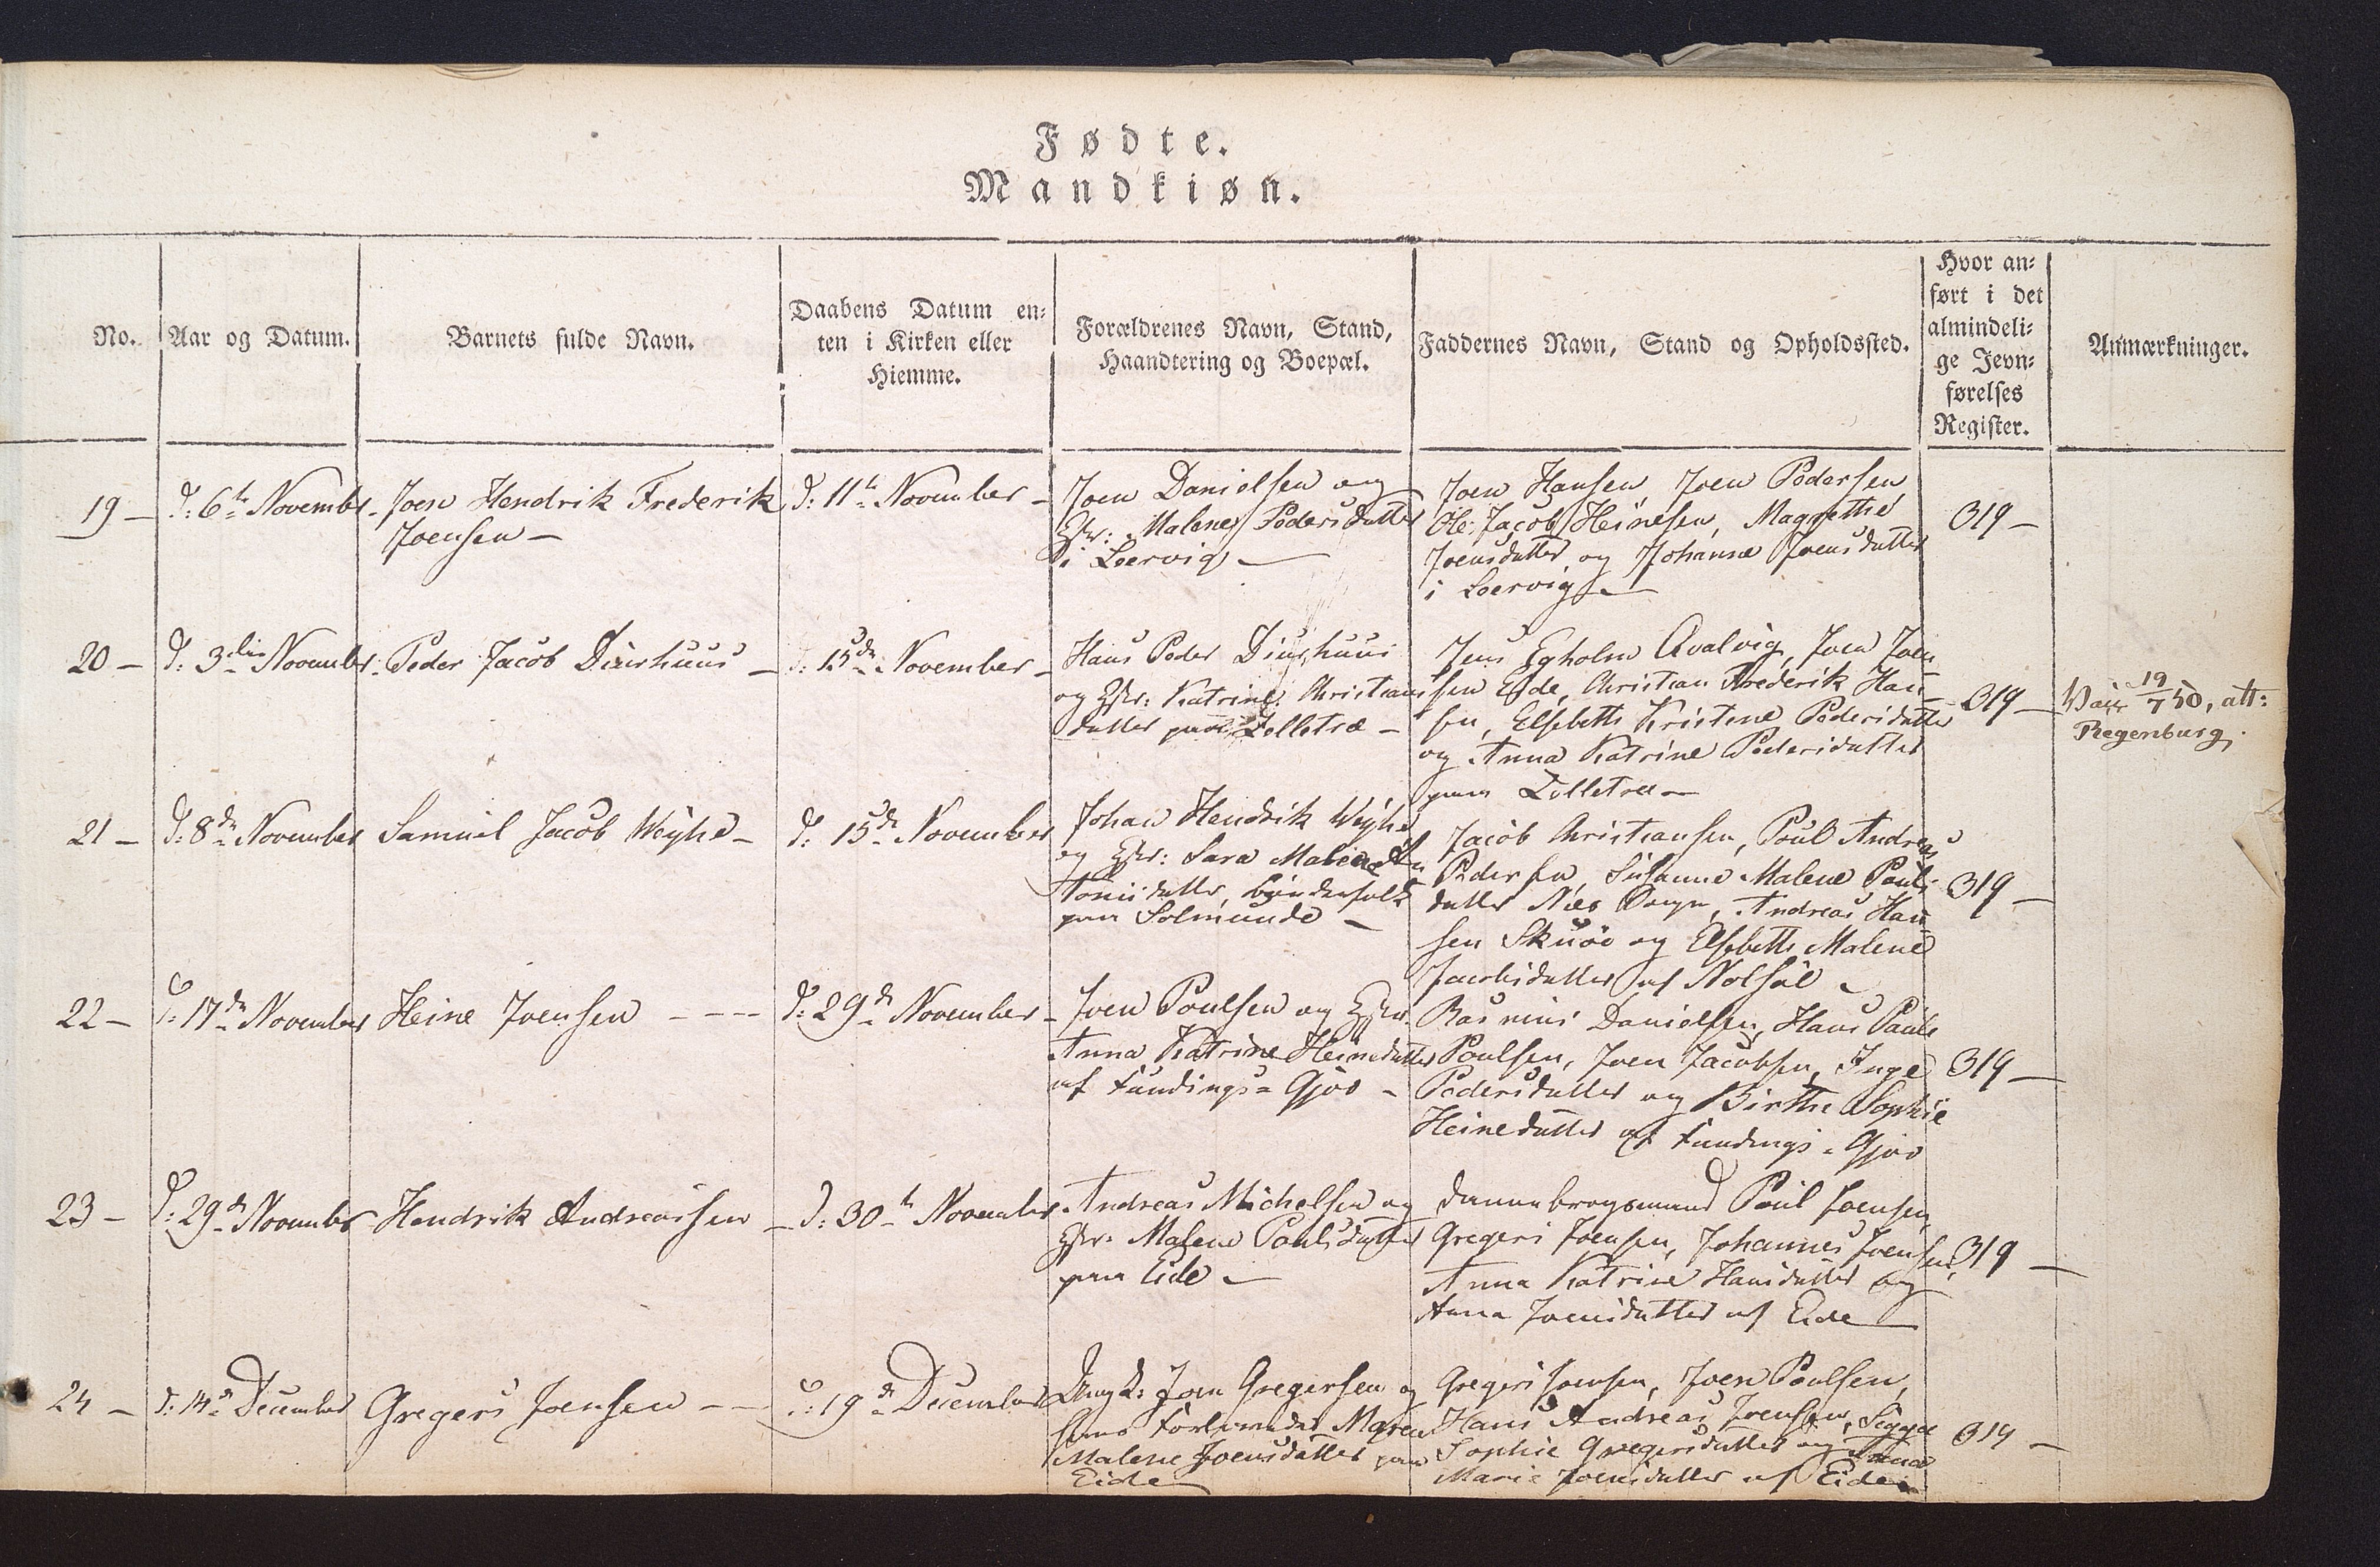 Fødte.
Mandkiøn.
No.
Aar og Datum.
Barnets fulde Navn.
Daabens Datum en-
ten i Kirken eller
Hiemme.
Forældrenes Navn, Stand,
Haandtering og Boepæl.
Faddernes Navn, Stand og Opholdssted.
Hvor an-
ført i det
almindeli-
ge Jevn-
førelses
Register.
Anmærkninger.
19 –
d: 6te Novembr.
Joen Hendrik Frederik
Joensen –
d: 11te November –
Joen Danielsen og
Hstr: Malene Pedersdatter
i Leervig –
Joen Hansen, Joen Pedersen
Ole Jacob Heinesen, Magrethe
Joensdatter og Johanne Joensdatter
i Leervig –
319 –
20 –
d: 3die Novembr.
Peder Jacob Diurhuus –
d: 15de November –
Hans Peder Diurhuus
og Hstr: Katrine Christians
datter paa Zelletræ –
Jens Egholm Qvalvig, Joen Joen
sen Eide, Christian Frederik Han-
sen, Elsebeth Kristine Pedersdatter
og Anna Katrine Pedersdatter
paa Zelletræ –
319 –
Vacc 19/7 50, att:
Regenburg.
21 –
d: 8de November
Samuel Jacob Weyhe –
d: 15de November
Johan Hendrik Weyhe
og Hstr: Sara Malene
datter, bønderfolk
paa Solmunde –
Jacob Christiansen, Poul Andreas
Pedersen, Susanne Malene Pouls
datter Næs, Andreas Han
sen Skuøe og Elsebeth Malene
Jacobsdatter af Nolsøe –
319 –
22 –
d: 17de November
Heine Joensen – – – –
d: 29de November –
Joen Poulsen og Hstr.
Anna Katrine Heinedatter
af Fundings-Gjov –
Rasmus Danielsen, Hans Paule
Poulsen, Joen Jacobsen, Inge
Pedersdatter og Birthe Sophie
Heinedatter af Fundings-Gjov
319 –
23 –
d: 29de Novembr
Hendrik Andreassen –
d: 30te November
Andreas Michelsen og
Hstr. Malene Poulsdatter
paa Eide –
Dannebrogsmand Poul Joensen,
Gregers Joensen, Johannes Joensen,
Anna Katrine Hansdatter og
Anna Joensdatter af Eide
319 –
24 –
d: 14de December
Gregers Joensen – –
d: 19de December
Ungk: Joen Gregersen og
hans Forlovede Maren
Malene Joensdatter paa
Eide
Gregers Joensen, Joen Poulsen,
Hans Andreas Joensen, Sigga
Sophie Gregersdatter og Anna
Marie Joensdatter af Eide.
319 –